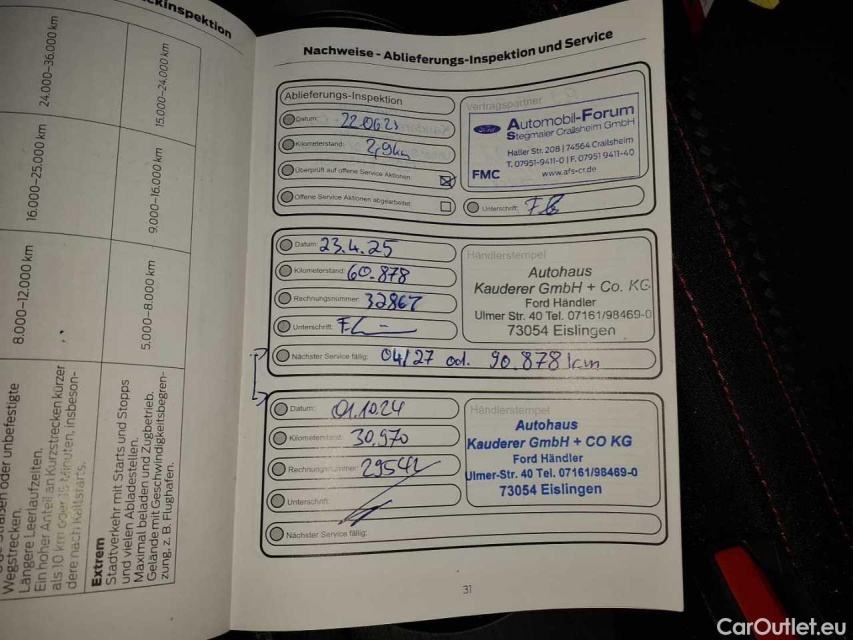 ckinspektion
24.000–36.000 km
15.000–24.000 km
16.000–25.000 km
9.000–16.000 km
8.000–12.000 km
5.000–8.000 km
oder unbefestigte
Wegstrecken.
Längere Leerlaufzeiten.
Ein hoher Anteil an Kurzstrecken kürzer
als 10 km oder 15 Minuten, insbeson-
dere nach Kaltstarts.
Extrem
Stadtverkehr mit Starts und Stopps
und vielen Abladestellen.
Maximal beladen und Zugbetrieb.
Gelände mit Geschwindigkeitsbegren-
zung, z. B. Flughafen.
Nachweise - Ablieferungs-Inspektion und Service
Ablieferungs-Inspektion
Datum: 220623
Kilometerstand: 2,9km
Überprüft auf offene Service Aktionen
Offene Service Aktionen abgearbeitet
Vertragspartner
Ford
Automobil-Forum
Stegmaier Crailsheim GmbH
Haller Str. 208 | 74564 Crailsheim
T. 07951-9411-0 | F. 07951 9411-40
FMC www.afs-cr.de
Unterschrift:
Datum: 23.4.25
Kilometerstand: 60.878
Rechnungsnummer: 32867
Unterschrift:
Händlerstempel
Autohaus
Kauderer GmbH + Co. KG
Ford Händler
Ulmer Str. 40 Tel. 07161/98469-0
73054 Eislingen
Nächster Service fällig: 04/27 od. 90.878 km
Datum: 01.10.24
Kilometerstand: 30,970
Rechnungsnummer: 29541
Unterschrift:
Nächster Service fällig:
Händlerstempel
Autohaus
Kauderer GmbH + CO KG
Ford Händler
Ulmer-Str. 40 Tel. 07161/98469-0
73054 Eislingen
31
CarOutlet.eu